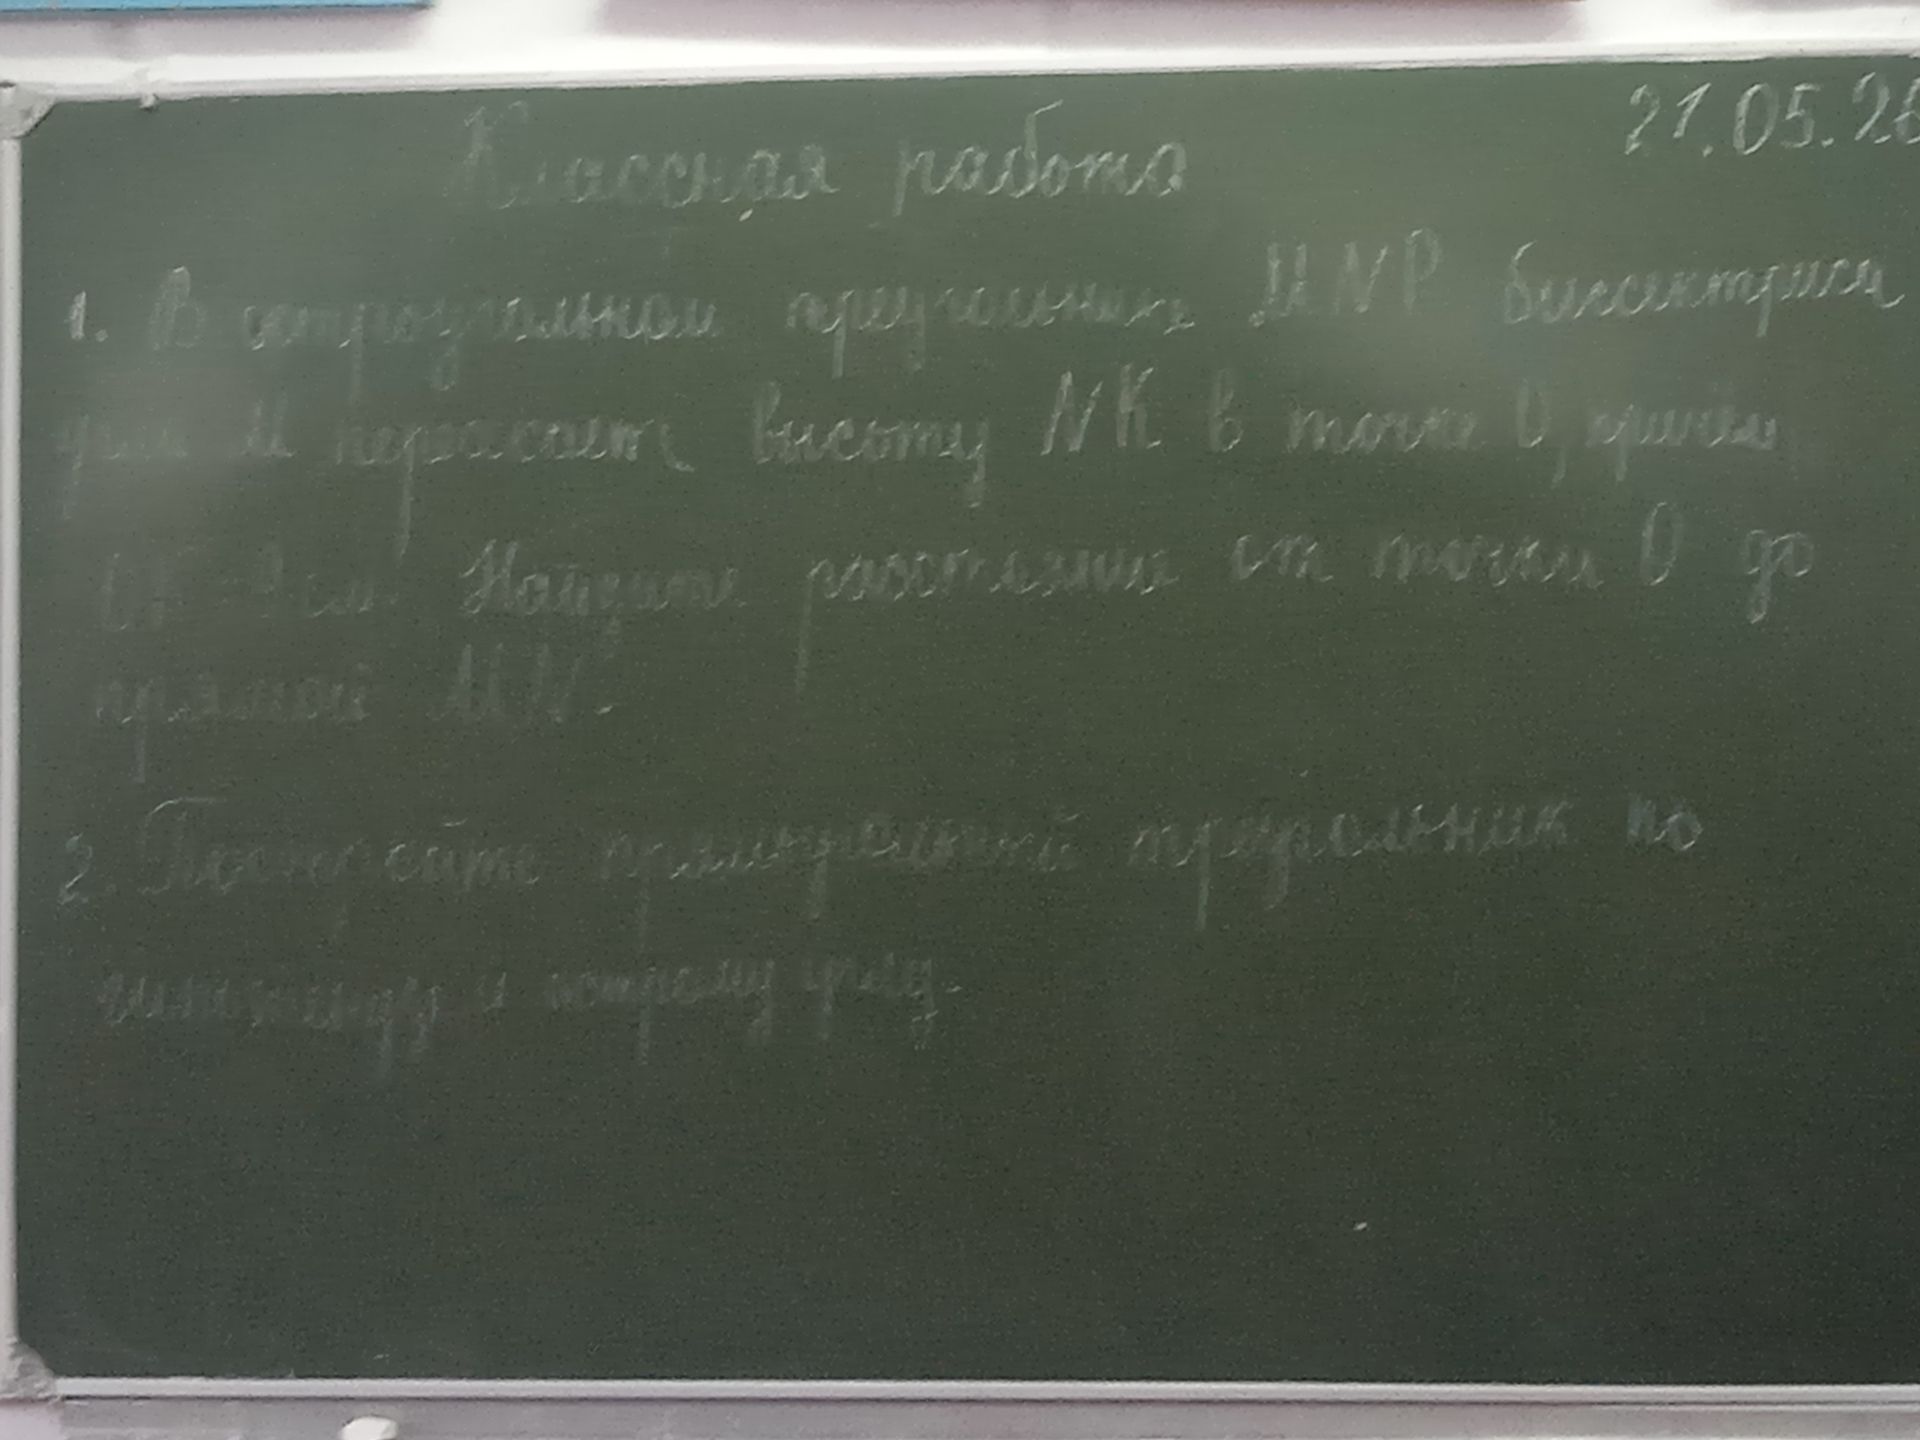 21.05.26
Классная работа
1. В остроугольном треугольнике MNP биссектриса
угла M пересекает высоту NK в точке O, причём
см. Найдите расстояние от точки O до
прямой MN.
2. Постройте прямоугольный треугольник по
гипотенузе и острому углу.